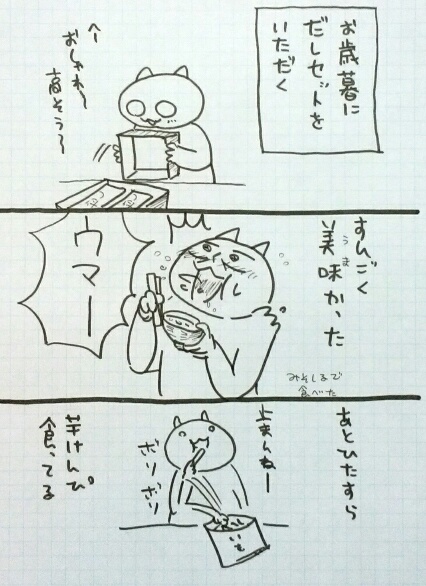 お歳暮に
だしセットを
いただく
へー
おしゃれ〜
高そう〜
すんごく
美味かった
うま
ウマー
みそしるで
食べた
あとひたすら
芋けんぴ
食ってる
止まんねー
ボリ
ボリ
いも